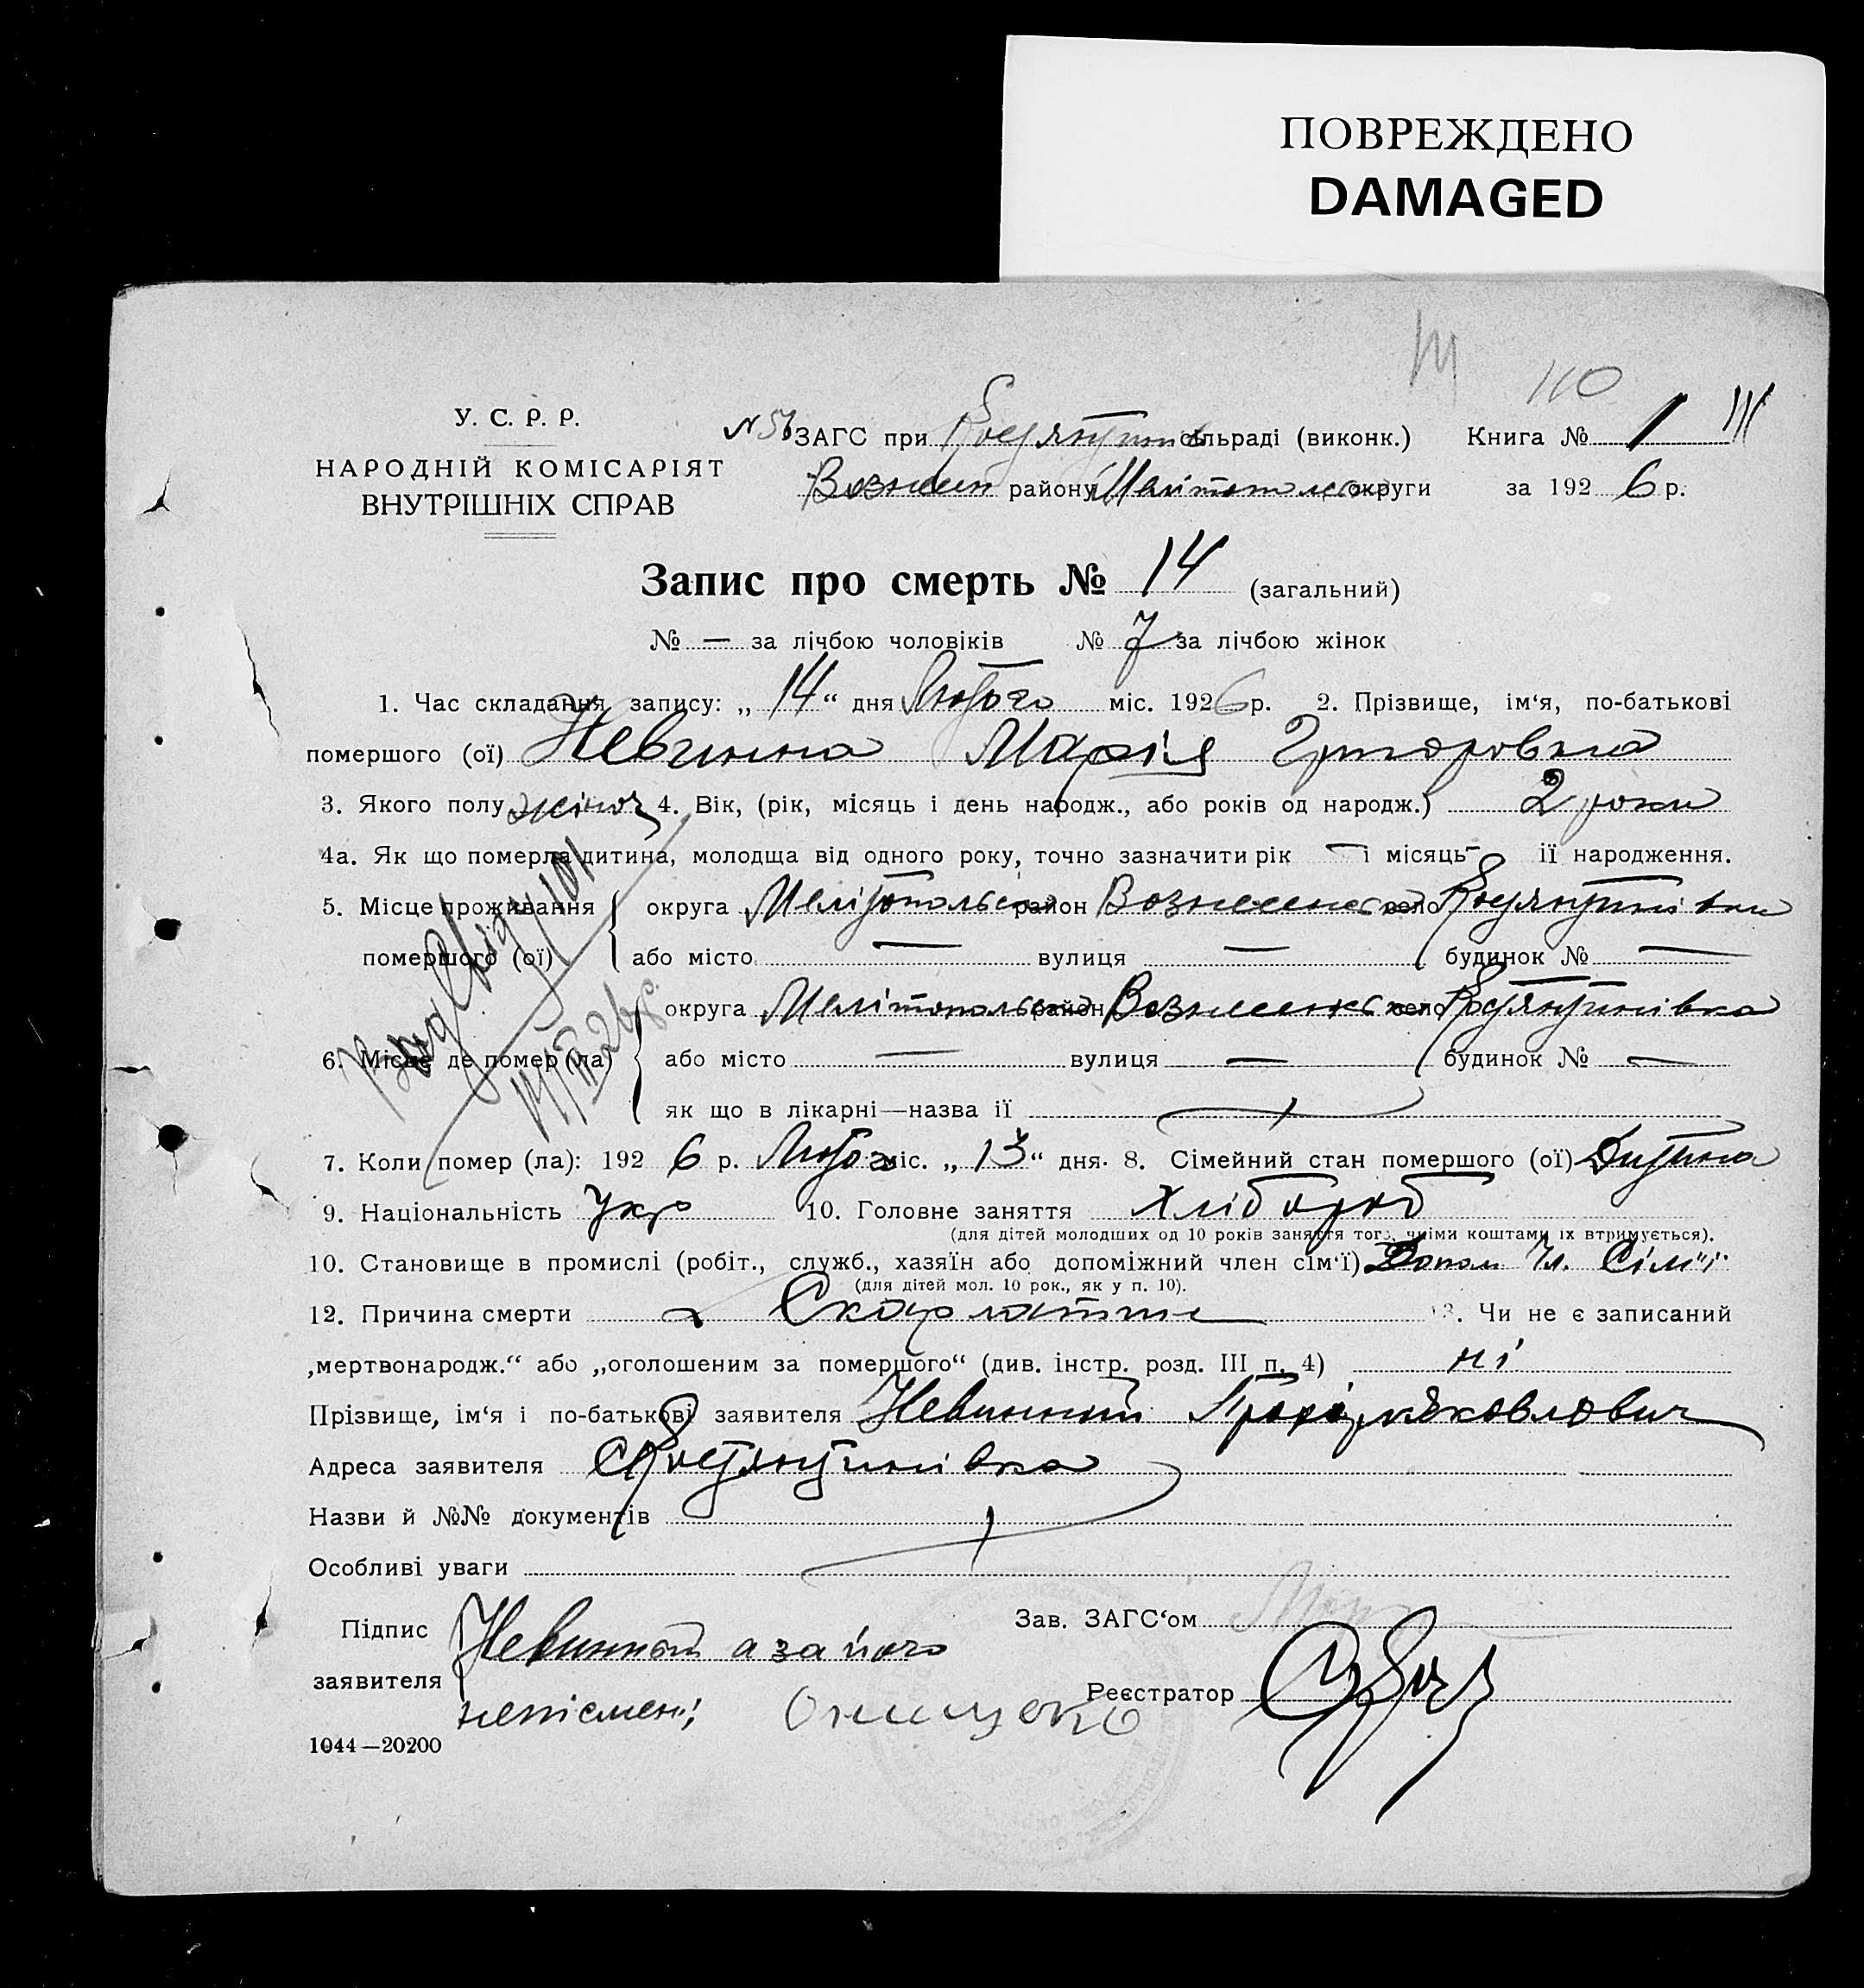 ПОВРЕЖДЕНО
DAMAGED
110
У. С. Р. Р.
НАРОДНІЙ КОМІСАРІЯТ
ВНУТРІШНІХ СПРАВ
N 56 ЗАГС при сільраді (виконк.) Книга № 1
Вознесен району Мелітопольс округи за 1926 р.
Запис про смерть № 14 (загальний)
№ — за лічбою чоловіків № 7 за лічбою жінок
1. Час складання запису: „ 14 “ дня Лютого міс. 1926 р. 2. Прізвище, ім‘я, по-батькові
помершого (ої) Невинна Марія Григоровна
3. Якого полу жіноч 4. Вік, (рік, місяць і день народж., або років од народж.) 2 роки
4а. Як що померла дитина, молодща від одного року, точно зазначити рік — і місяць — її народження.
5. Місце проживання помершого (ої) округа Мелітопольська район Вознесенська село Костянтинівка
або місто — вулиця — будинок № —
6. Місце де помер (ла) округа Мелітопольська район Вознесенська село Костянтинівка
або місто — вулиця — будинок № —
як що в лікарні—назва її
7. Коли помер (ла): 1926 р. Лютого міс. „ 13 “ дня. 8. Сімейний стан помершого (ої) Дитина
9. Національність Укр 10. Головне заняття Хлібороб
(для дітей молодших од 10 років заняття того, чиїми коштами їх втримується).
10. Становище в промислі (робіт., служб., хазяїн або допоміжний член сім‘ї) Допом Чл. Сімї
(для дітей мол. 10 рок., як у п. 10).
12. Причина смерти Скарлатини 13. Чи не є записаний
„мертвонародж.“ або „оголошеним за помершого“ (див. інстр. розд. III п. 4) ні
Прізвище, ім‘я і по-батькові заявителя Невинний Яковлович
Адреса заявителя С Костянтинівка
Назви й №№ документів
Особливі уваги
Підпис заявителя Невинний а за його
неписмен; Онищенко
Зав. ЗАГС‘ом
Реєстратор
1044—20200